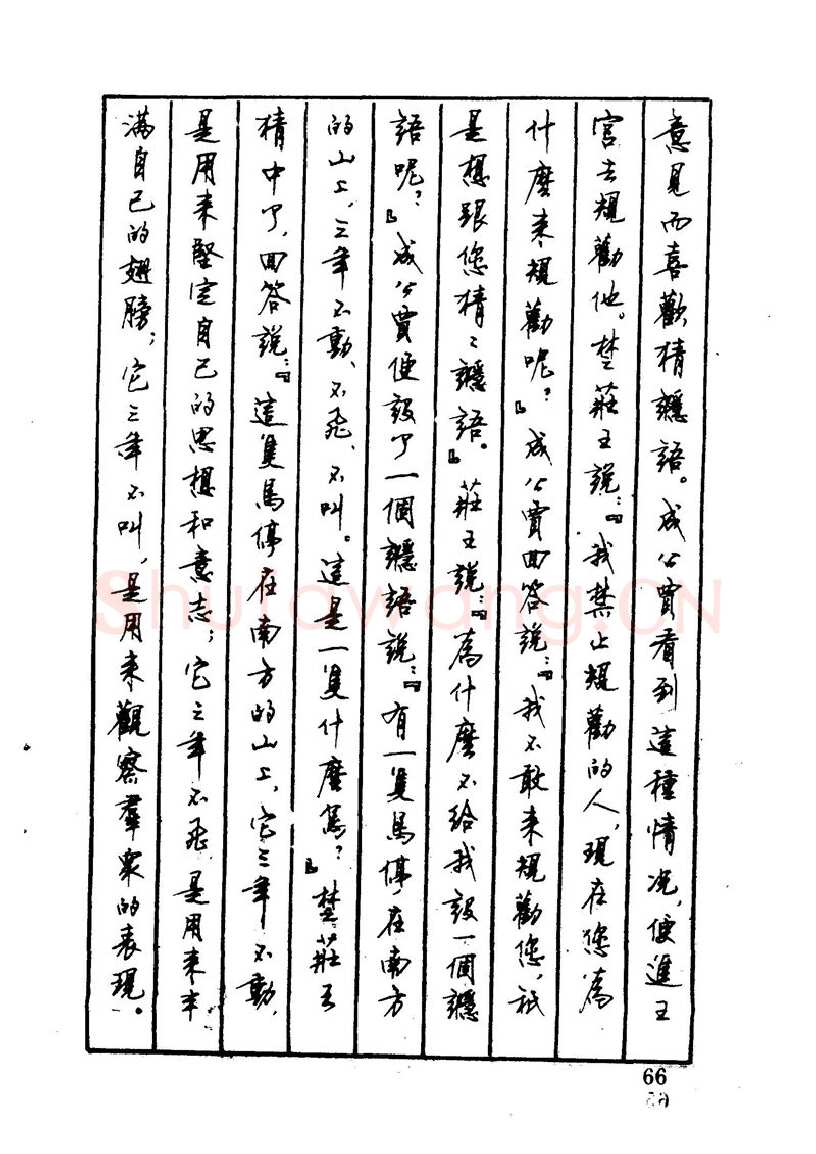 意見而喜歡猜讔語。成公賈看到這種情况，便進王
宫去規勸他。楚莊王説：『我禁止規勸的人，現在您爲
什麽来規勸呢？』成公賈回答説：『我不敢来規勸您，祇
是想跟您猜〻讔語。』莊王説：『爲什麽不給我設一個讔
語呢？』成公賈便設了一個讔語説：『有一隻鳥停在南方
的山上，三年不動、不飛、不叫。這是一隻什麽鳥？』楚莊王
猜中了，回答説：『這隻鳥停在南方的山上，它三年不動，
是用来堅定自己的思想和意志；它三年不飛，是用来丰
滿自己的翅膀；它三年不叫，是用来觀察羣衆的表現。
66
Shufawang.CN